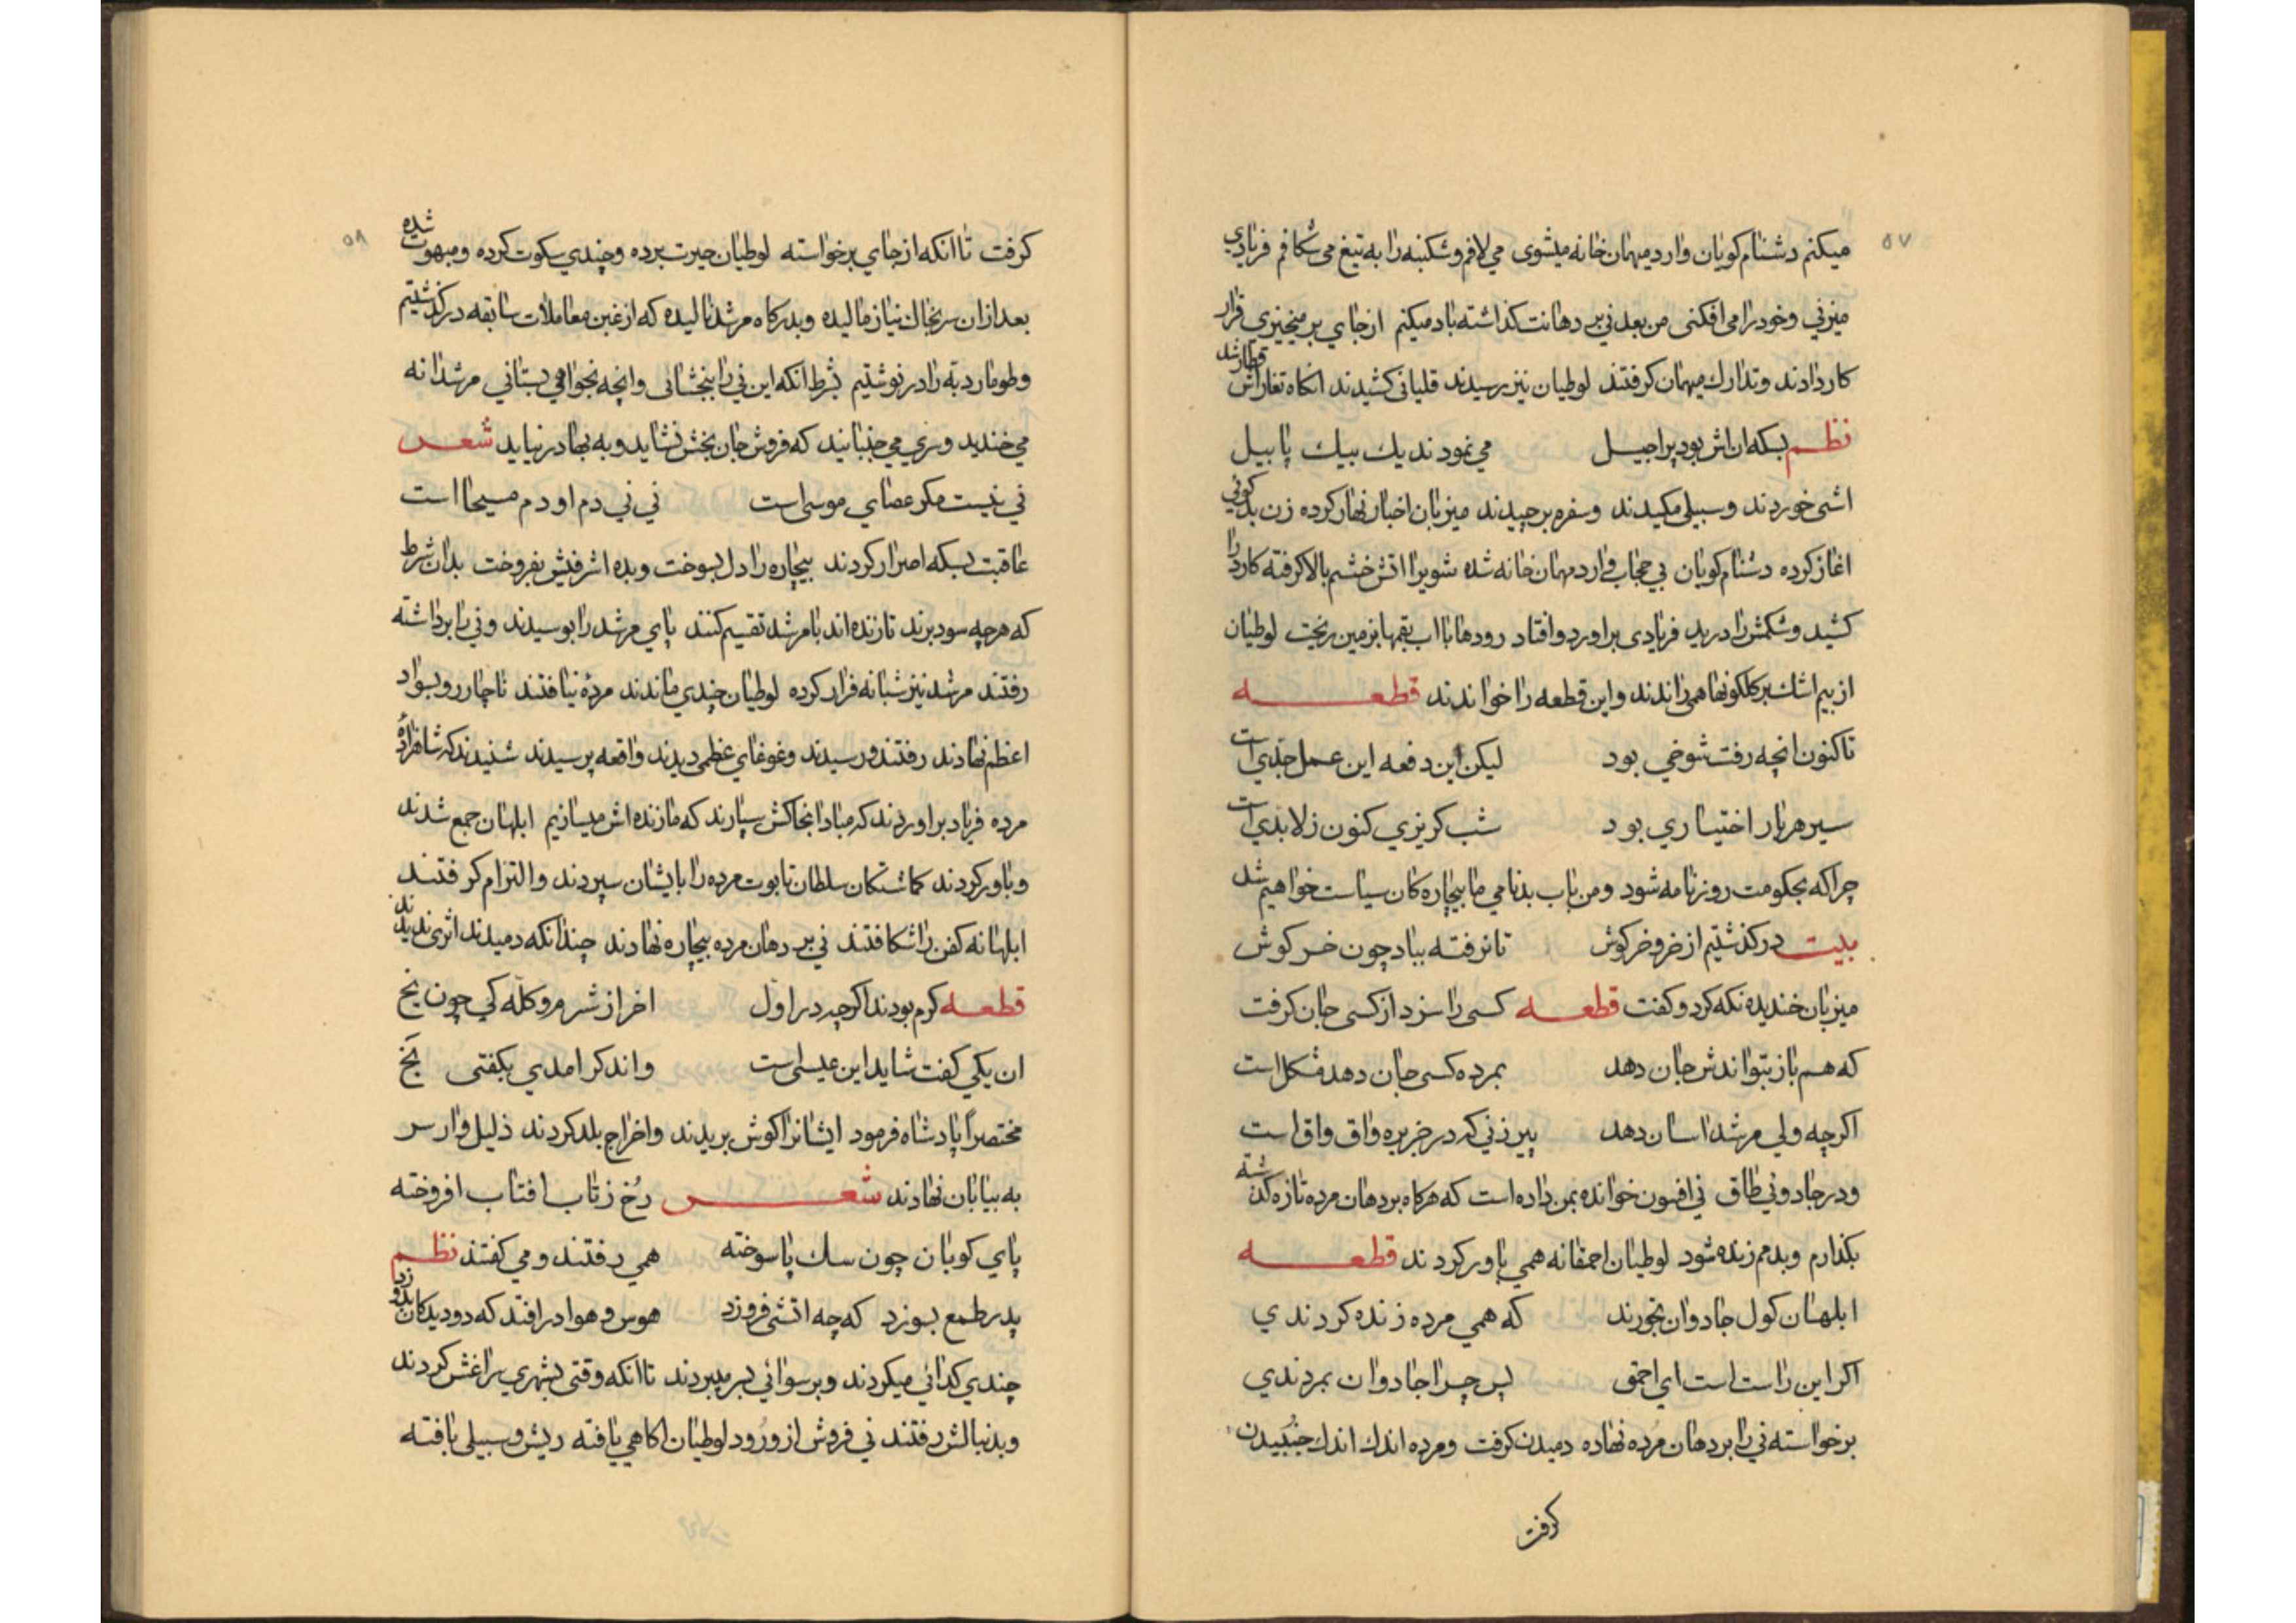 ۵۷
میکنم دشنام کویان وارد میهمان خانه میشوی می لافم و شکنبه را به تیغ می شکافم فریادی
میزنی و خود را می افکنی من بعد نی بر دهانت کذاشته باد میکنم از جای بر میخیزی قرار
کار دادند و تدارك میهمان کرفتند لوطیان نیز برسیدند قلیانی کشیدند انکاه تغار اش قطار شد
نظم بسکه ان اش بود پراجیل می نمودند یك بیك پا بیل
اشی خوردند و سبیلی مکیدند و سفره برچیدند میزبان اخبار نهار کرده زن بد کوئی
اغاز کرده دشنام کویان بی حجاب وارد مهمان خانه شده شویرا اتش خشم بالا کرفته کارد را
کشید و شکمش را درید فریادی براورد و افتاد رودها با اب بقمها بزمین ریخت لوطیان
از بیم اشك بر کلکونها همی راندند و این قطعه را خواندند قطعه
تاکنون انچه رفت شوخی بود لیکن این دفعه این عمل جدی است
سیر هر بار اختیاری بود شب کریزی کنون ز لابدی است
چرا که بحکومت روزنامه شود و من باب بدنامی ما بیچاره کان سیاست خواهیم شد
بیت درکذشتیم از خر و خرکوش تا نرفته بباد چون خر کوش
میزبان خندیده نکه کرد و کفت قطعه کسی را سزد از کسی جان کرفت
که هم باز بتواندش جان دهد بمرده کسی جان دهد مشکل است
اکرچه ولی مرشد اسان دهد پیر زنی که در جزیره واق واق است
و در جادونی طاق نی افسون خوانده بمن داده است که هرکاه بر دهان مرده تازه کذشته
بکذارم و بدمم زنده شود لوطیان احمقانه همی باور کردند قطعه
ابلهان کول جادوان بخورند که همی مرده زنده کردندی
اکر این راست است ای احمق پس چرا جادوان بمردندی
برخواسته نی را بر دهان مرده نهاده دمیدن کرفت و مرده اندك اندك جنبیدن
کرفت
۵۸
کرفت تا انکه از جای برخواسته لوطیان حیرت برده و چندی سکوت کرده و مبهوت شده
بعد ازان سر بخاك نیاز مالیده و بدرکاه مرشد نالیده که از غبن معاملات سابقه درکذشتیم
و طومار دبه را در نوشتیم بشرط انکه این نی را ببخشائی و انچه بخواهی بستانی مرشدانه
می خندید و سری می جنبانید که فروش جان بخش نشاید و به بها در نیاید شعر
نی نیست مکر عصای موسی است نی نی دم او دم مسیحا است
عاقبت بسکه اصرار کردند بیچاره را دل بسوخت و بده اشرفیش بفروخت بدان شرط
که هرچه سود برند تا زنده اند با مرشد تقسیم کنند پای مرشد را بوسیدند و نی را برداشته
رفتند مرشد نیز شبانه فرار کرده لوطیان چندی ماندند مرده نیافتند ناچار رو بسواد
اعظم نهادند رفتند و رسیدند و غوغای عظمی دیدند واقعه پرسیدند شنیدند که شاهزاده
مرده فریاد براوردند که مبادا بخاکش سپارند که ما زنده اش میسازیم ابلهان جمع شدند
و باور کردند کماشتکان سلطان تابوت مرده را بایشان سپردند و التزام کرفتند
ابلهانه کفن را شکافتند نی بر دهان مرده بیچاره نهادند چندانکه دمیدند اثری ندیدند
قطعه کرم بودند اکرچه در اول اخر از شرم رو کله کی چون یخ
ان یکی کفت شاید این عیسی است واند کر امدی بکفتی بخ
مختصرا پادشاه فرمود ایشانرا کوش بریدند و اخراج بلد کردند ذلیل وار سر
به بیابان نهادند شعر رخ ز تاب افتاب افروخته
پای کوبان چون سك پا سوخته همی رفتند و می کفتند نظم
پدر طمع بسوزد که چه اتشی فروزد هوس و هوا در افتد که دو دیدکان بدوزد
چندی کدائی میکردند و برسوائی بسر میبردند تا انکه وقتی بشهری سراغش کردند
و بدنبالش رفتند نی فروش از ورود لوطیان اکاهی یافته ریش و سبیلی بافته